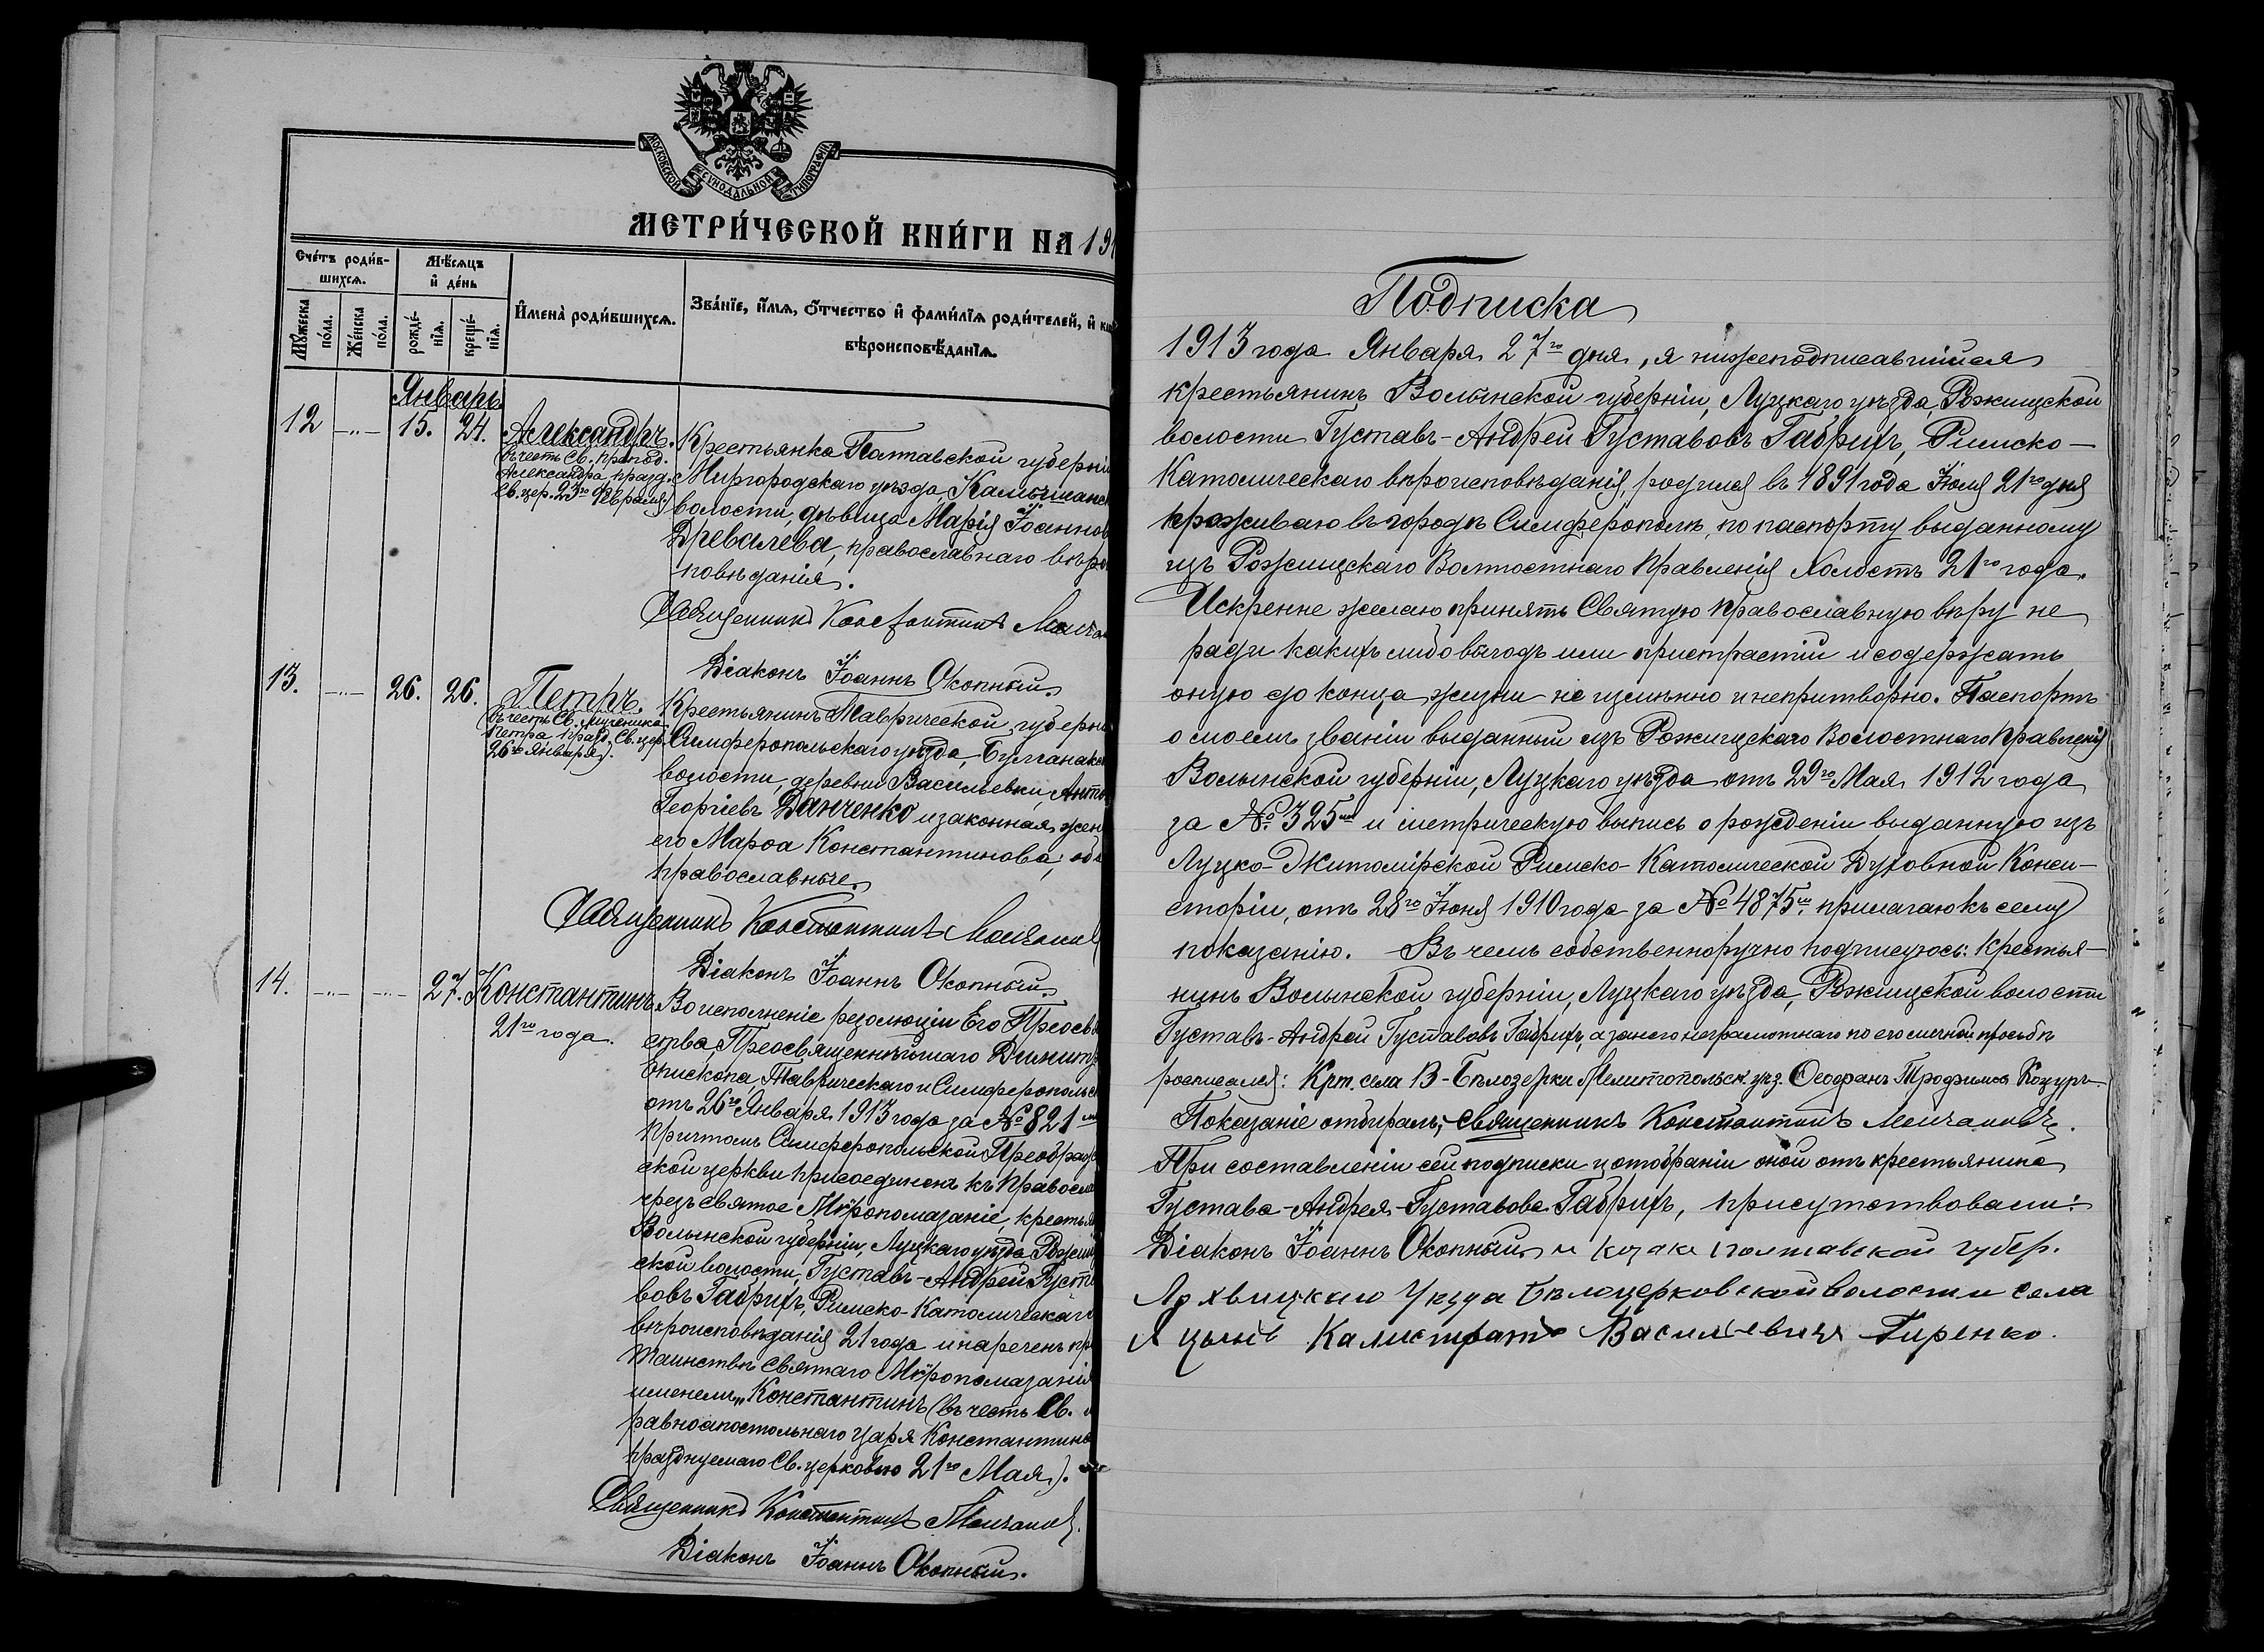 МОСКОВСКОЙ СѴНОДАЛЬНОЙ ТИПОГРАФІИ
МЕТРИ́ЧЕСКОЙ КНИ́ГИ НА 191
Сче́тъ роди́в-
шихсѧ.
Мѣ́сѧцъ
и де́нь
Мꙋ́жеска по́ла.
Же́нска по́ла.
рожде́-
нїѧ.
креще́-
нїѧ.
И҆мена̀ роди́вшихсѧ.
Зва́нїе, и҆́мѧ, ѻ҆́тчество и҆ фами́лїѧ роди́телей, и҆
вѣроисповѣ́данїѧ.
Январь
12 —„— 15. 24. Александръ.
(въ честь Св. препод.
Александра празд.
Св. цер. 23го Февраля)
Крестьянка Полтавской губерніи
Миргородскаго уѣзда, Камышанс
волости, дѣвица Марія Іоаннов
Древалева, православнаго вѣро
повѣданія.
Священникъ Константинъ
Діаконъ Іоаннъ Окопный.
13. —„— 26. 26. Петръ.
(въ честь Св. мученика
Петра празд. Св. цер.
26го Января).
Крестьянинъ Таврической губерн
Симферопольскаго уѣзда, Булганакс
волости, деревни Васильевки, Анто
Георгіевъ Данченко и законная жен
его Марѳа Константинова, оба
православные.
Священникъ Константинъ
Діаконъ Іоаннъ Окопный.
14. —„— —„— 27. Константинъ
21го года.
Во исполненіе резолюціи Его Преосвя
ства, Преосвященнѣйшаго Димит
Епископа Таврическаго и Симферопольс
отъ 26го Января 1913 года за № 821мъ
причтомъ Симферопольской Преображ
ской церкви присоединенъ къ Правосла
чрезъ святое Мѵропомазаніе, крестья
Волынской губерніи, Луцкаго уѣзда, Рожищ
ской волости, Густавъ-Андрей Густа
вовъ Габрихъ, Римско-Католическаго
вѣроисповѣданія 21 года и нареченъ пр
Таинствѣ Святаго Мѵропомазанія
именемъ „Константинъ (въ честь Св. и
равноапостольнаго царя Константина
празднуемаго Св. церковью 21го Мая).
Священникъ Константинъ
Діаконъ Іоаннъ Окопный.
Подписка
1913 года Января 27го дня, я нижеподписавшійся
крестьянинъ Волынской губерніи, Луцкаго уѣзда, Рожищской
волости Густавъ-Андрей Густавовъ Габрихъ, Римско-
Католическаго вѣроисповѣданія, родился въ 1891 года Іюля 21го дня
проживаю въ городѣ Симферополѣ, по паспорту выданному
изъ Рожищскаго Волостнаго Правленія холостъ 21го года.
Искренне желаю принять Святую Православную вѣру не
ради какихъ либо выгодъ или пристрастій и содержать
оную до конца жизни не измѣнно и непритворно. Паспортъ
о моемъ званіи выданный изъ Рожищскаго Волостнаго Правленія
Волынской губерніи, Луцкаго уѣзда отъ 29го Мая 1912 года
за № 325мъ и метрическую выпись о рожденіи выданную изъ
Луцко-Житомірской Римско-Католической Духовной Конси-
сторіи, отъ 28го Іюня 1910 года за № 4875мъ, прилагаю къ сему
показанію. Въ чемъ собственноручно подписуюсь: Крестья-
нинъ Волынской губерніи, Луцкаго уѣзда, Рожищской волости
Густавъ-Андрей Густавовъ Габрихъ, а за него неграмотнаго по его личной просьбѣ
росписался: Крт. села В-Бѣлозерки Мелитопольск. уѣз. Ѳеофанъ Трофимовъ Коцуръ
Показаніе отбиралъ: Священникъ Константинъ
При составленіи сей подписки и отобраніи оной отъ крестьянина
Густава-Андрея Густавова Габрихъ, присутствовали:
Діаконъ Іоаннъ Окопный и козакъ Полтавской губер.
Лохвицкаго Уезда Бѣлоцерковской волости села
Калистратъ Василіевичъ Гиренко.